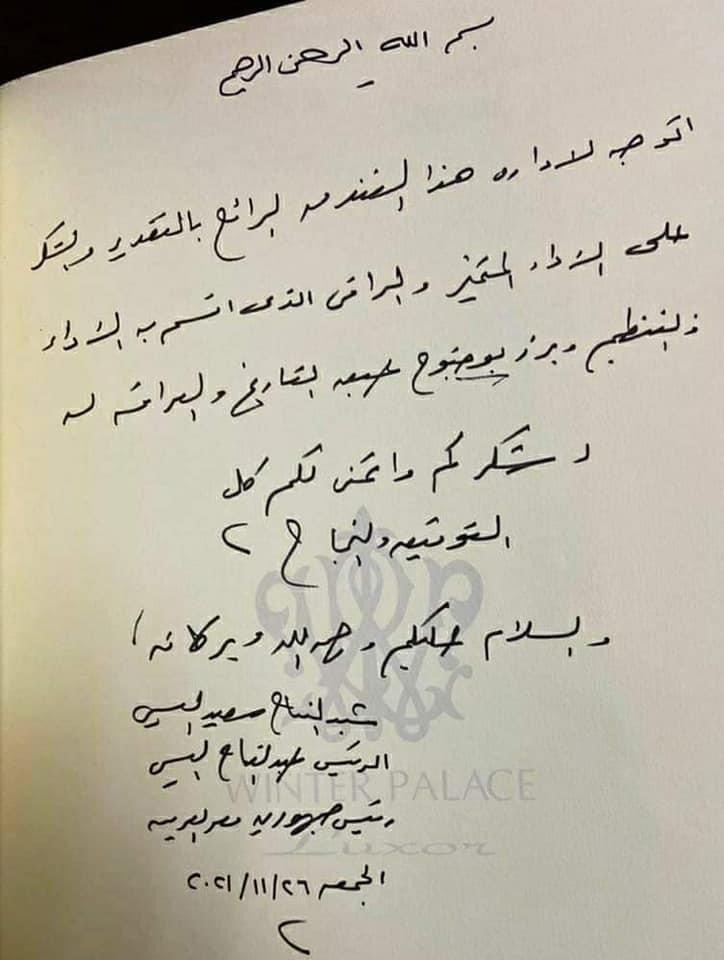 بسم الله الرحمن الرحيم
اتوجه لاداره هذا الفندق الرائع بالتقدير والشكر
على الاداء المتميز والراقى الذى اتسم به الاداء
والتنظيم وبرز بوضوح عبق التاريخ والعراقه له
اشكركم واتمنى لكم كل
التوفيق والنجاح
والسلام عليكم ورحمه الله وبركاته
عبد الفتاح سعيد السيسي
الرئيس عبد الفتاح السيسي
WINTER PALACE
رئيس جمهوريه مصر العربيه
Luxor
الجمعه ٢٠٢١/١١/٢٦